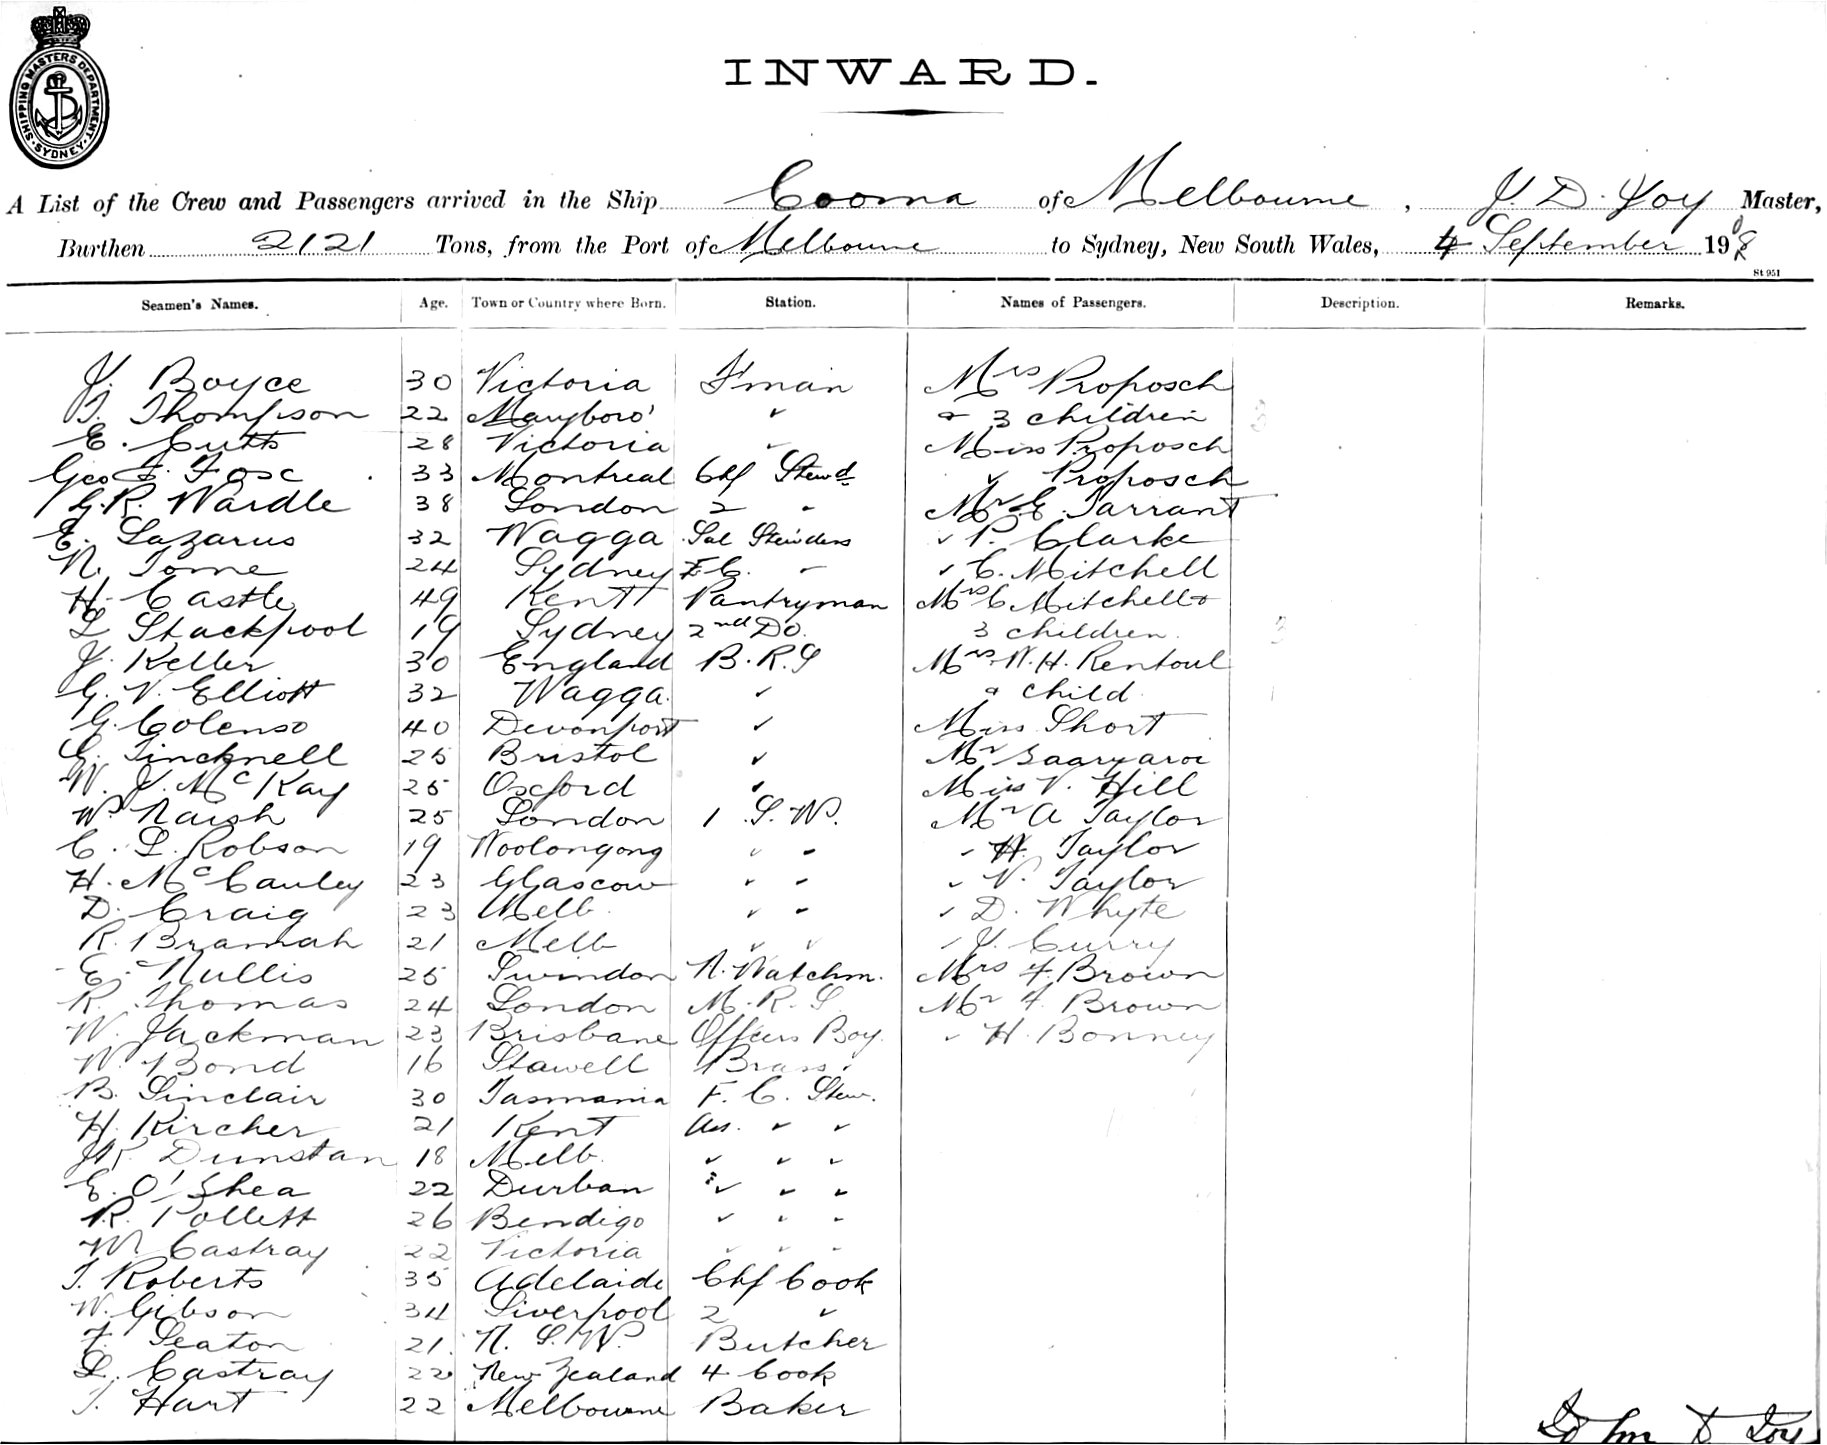 SHIPPING MASTERS DEPARTMENT. SYDNEY.
INWARD.
A List of the Crew and Passengers arrived in the Ship Cooma of Melbourne, J. D. Joy Master,
Burthen 2121 Tons, from the Port of Melbourne to Sydney, New South Wales, 4 September 1908
St 951
Seamen's Names. Age. Town or Country where Born. Station. Names of Passengers. Description. Remarks.
J. Boyce 30 Victoria F'man Mrs Proposch
T. Thompson 22 Maryboro' " & 3 children
E. Cutts 28 Victoria " Miss Proposch
Geo F. Fosc 33 Montreal Chf Stewd " Proposch
G. R. Wardle 38 London 2 " Mr E. Tarrant
E. Lazarus 32 Wagga Sal " P. Clarke
N. Torne 24 Sydney F.C. " " C. Mitchell
H. Castle 49 Kent Pantryman Mrs C Mitchell &
L Stackpool 19 Sydney 2nd Do. 3 children
J. Keller 30 England B.R.S Mrs W. H. Rentoul
G. V. Elliott 32 Wagga " & child
G. Colenso 40 Devonport " Miss Short
G. Tincknell 25 Bristol " Mr
W. J. McKay 25 Oxford " Miss V. Hill
W. Naish 25 London 1 S.W. Mr A Taylor
C. L. Robson 19 Woolongong " " " H. Taylor
H. McCauley 23 Glascow " " " V. Taylor
D. Craig 23 Melb. " " " D. Whyte
R. Bramah 21 Melb " " " J. Curry
E. Nullis 25 Swindon N. Watchm. Mrs F. Brown
R. Thomas 24 London M.R.S Mr F. Brown
W. Jackman 23 Brisbane Officers Boy. " H. Bonney
W. Bond 16 Stawell Brass "
B. Sinclair 30 Tasmania F. C. Stew.
H. Kircher 21 Kent Ass. " "
J. K. Dunstan 18 Melb. " " "
E. O'Shea 22 Durban " " "
R. Pollett 26 Bendigo " " "
W. Castray 22 Victoria " " "
T. Roberts 35 Adelaide Chf Cook
W. Gibson 34 Liverpool 2 "
F. Seaton 21 N. S. W. Butcher
L. Castray 22 New Zealand 4 Cook
T. Hart 22 Melbourne Baker
John D Joy